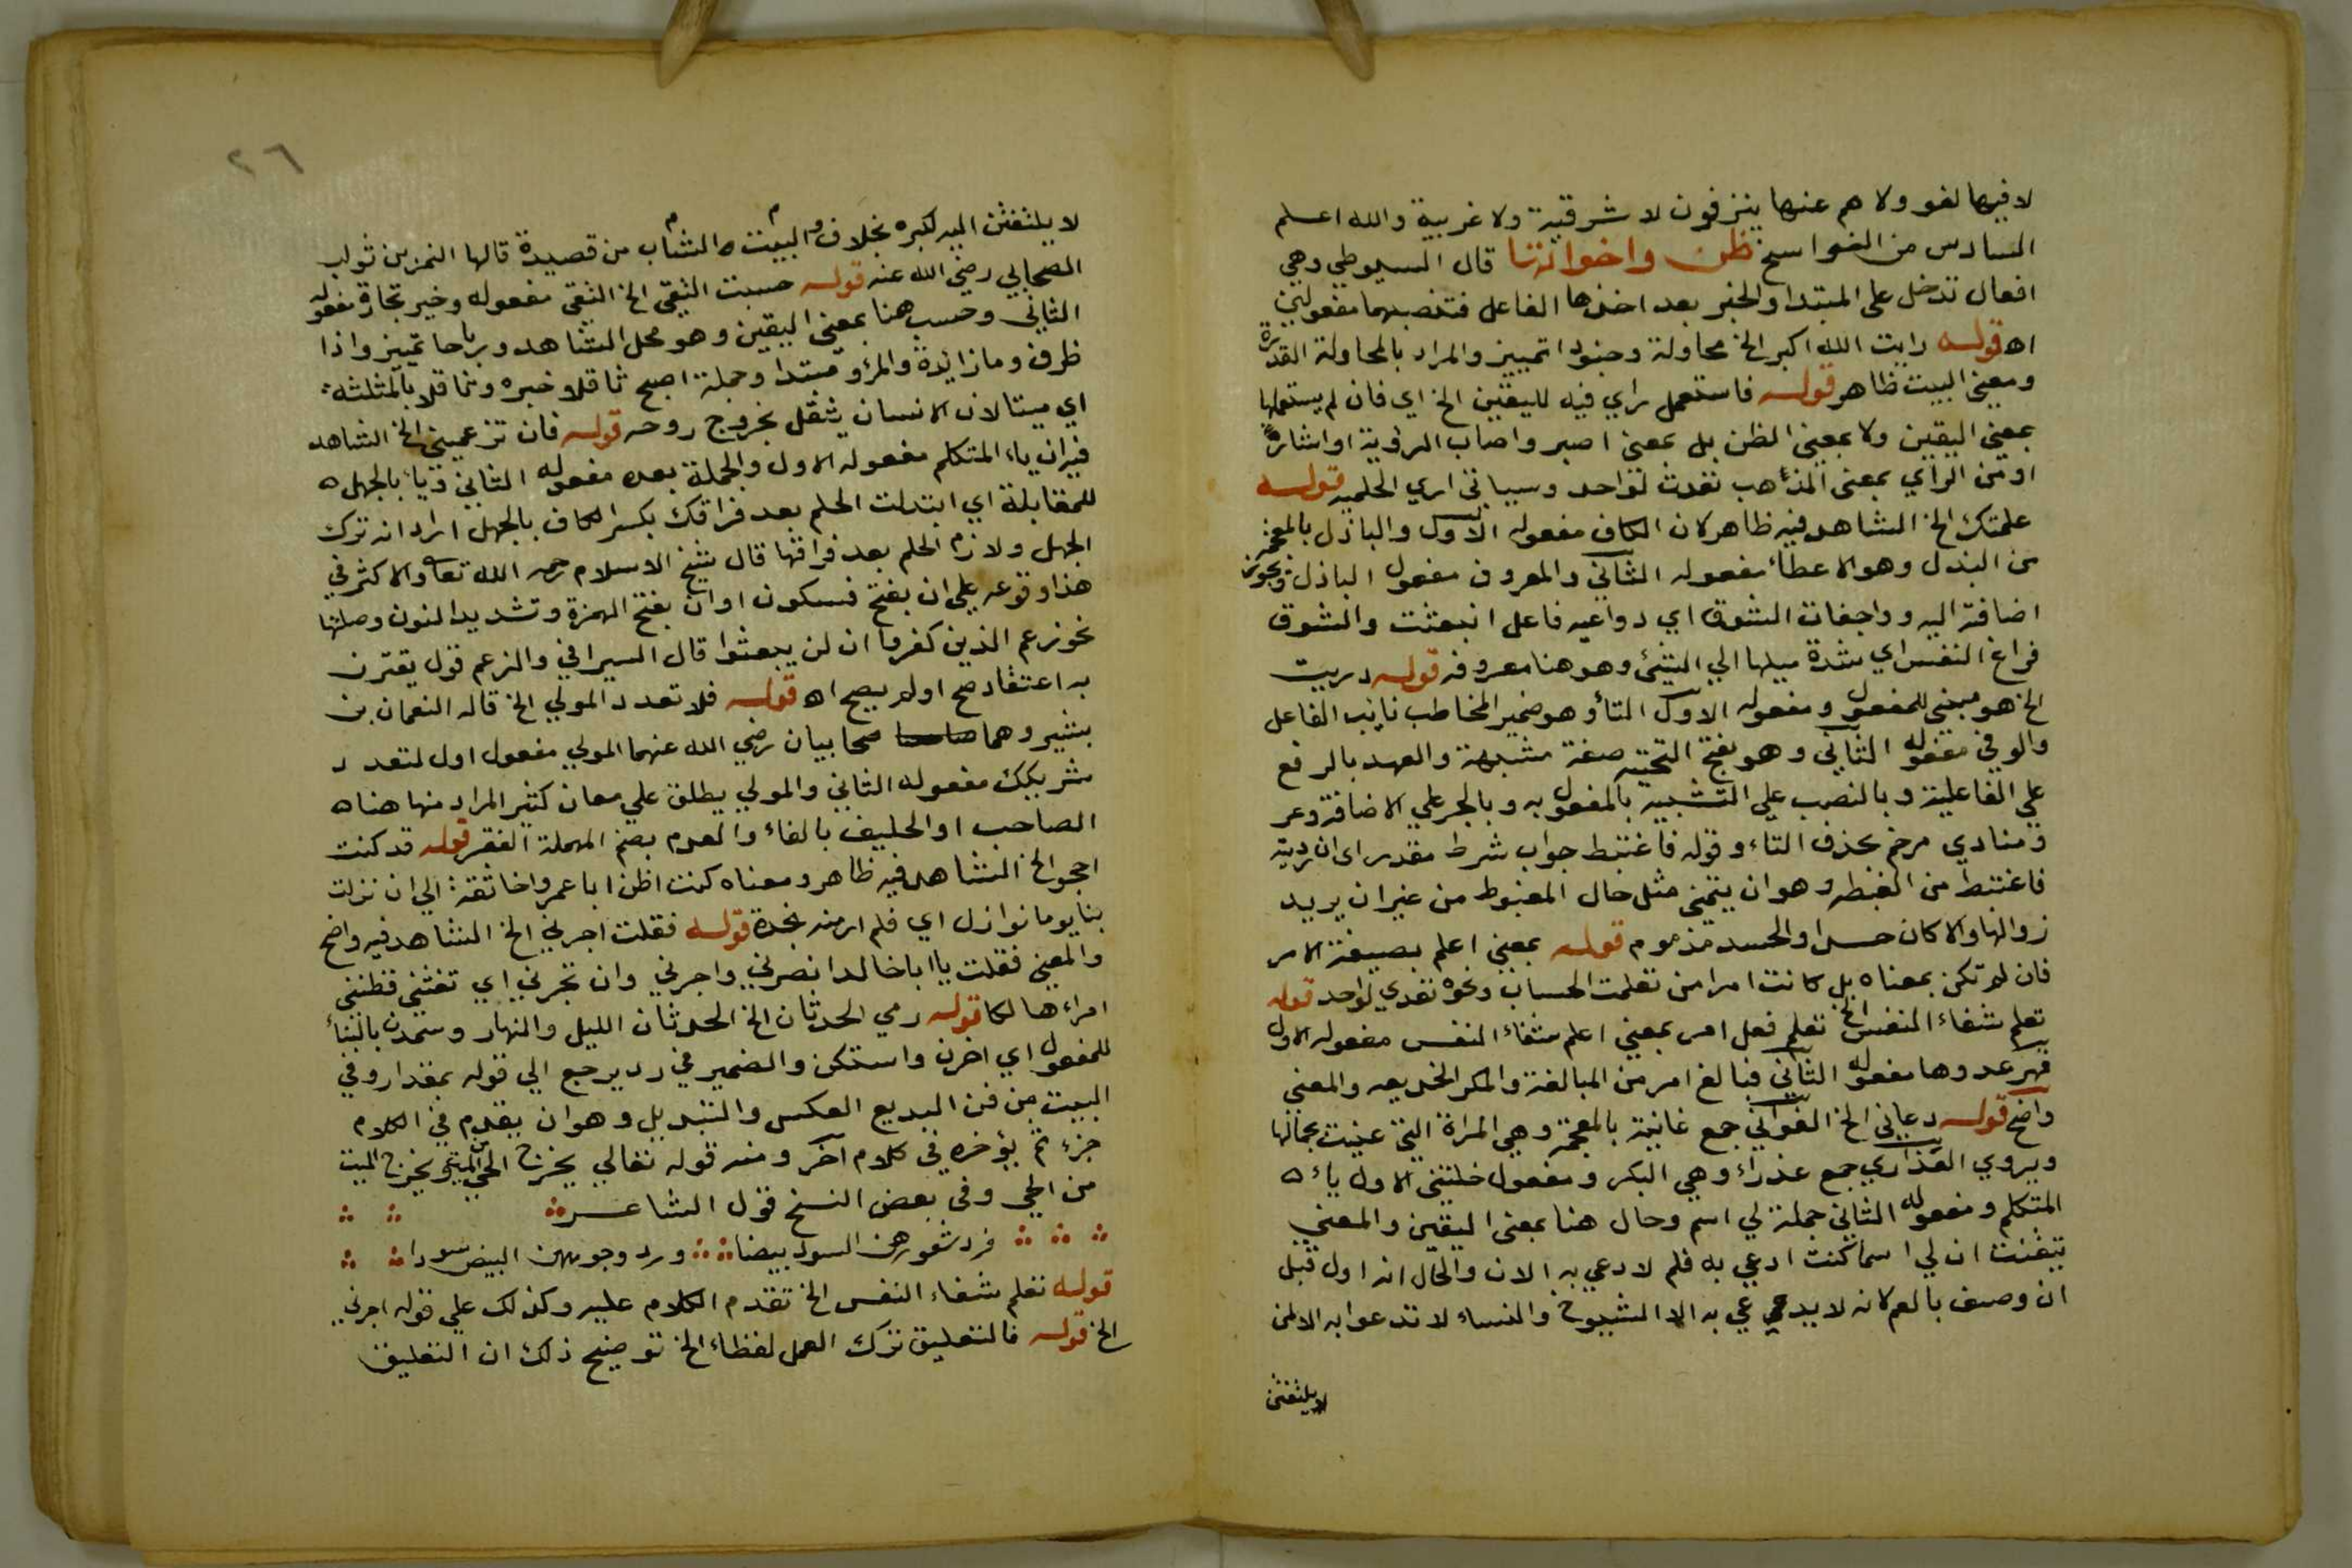 لا فيها لغو ولا هم عنها ينزفون لا شرقية ولا غربية والله اعلم
السادس من النواسخ ظن واخواتها قال السيوطي وهي
افعال تدخل على المبتدا والخبر بعد اخذها الفاعل فتنصبهما مفعولين
اه قوله رايت الله اكبر الخ محاولة وجنودا تمييز والمراد بالمحاولة القدرة
ومعني البيت ظاهر قوله فاستعمل راي فيه لليقين الخ اي فان لم يستعملها
بمعني اليقين ولا بمعني الظن بل بمعني ابصر واصاب الرؤية او اشارة
او من الراي بمعني المذهب تعدت لواحد وسياتي اري الحلمية قوله
علمتك الخ الشاهد فيه ظاهر لان الكاف مفعوله الاول والباذل بالمعجمة
من البذل وهو الاعطاء مفعوله الثاني والمعروف مفعول الباذل ويجوز
اضافته اليه وواجفات الشوق اي دواعيه فاعل انبعثت والشوق
فراغ النفس اي شدة ميلها الي الشئ وهو هنا معروفه قوله دريت
الخ هو مبني للمفعول ومفعوله الاول التاء وهو ضمير المخاطب نايب الفاعل
والوفي مفعوله الثاني وهو بفتح التحتية صفة مشبهة والعهد بالرفع
علي الفاعلية وبالنصب علي التشبيه بالمفعول به وبالجر علي الاضافة وعر
ومنادي مرخم بحذف التاء وقوله فاغتبط جواب شرط مقدر اي ان دريته
فاغتبط من الغبطه وهو ان يتمني مثل حال المغبوط من غير ان يريد
زوالها والا كان حسدا والحسد مذموم قوله بمعني اعلم بصيغة الامر
فان لم تكن بمعناه بل كانت امرا من تعلمت الحساب ونحوه تعدي لواحد قوله
تعلم شفاء النفس الخ تعلم فعل امر بمعني اعلم شفاء النفس مفعوله الاول
قهر عدوها مفعوله الثاني فبالغ امر من المبالغة والمكر الخديعه والمعني
واضح قوله دعاني الخ الغواني جمع غانية بالمعجمة وهي المراة التي غنيت بجمالها
ويروي العذاري جمع عذراء وهي البكر ومفعول خلتني الاول ياءه
المتكلم ومفعوله الثاني جملة لي اسم وخال هنا بمعني اليقين والمعني
تيقنت ان لي اسما كنت ادعي به فلم لا ادعي به الان والحال انه اول قبل
ان وصف بالعم لانه لا يدعي عمي به الا الشيوخ والنساء لا تدعوا به الا لمن
لا يلتفتن
٢٦
لا يلتفتن اليه لكبره بخلاف والبيت ه الشاب من قصيدة قالها النمر بن تولب
الصحابي رضي الله عنه قوله حسبت التقي الخ التقي مفعوله وخير تجارة مفعوله
الثاني وحسب هنا بمعني اليقين وهو محل الشاهد ورباحا تمييز واذا
ظرف وما زايدة والمرؤ مبتدا وجملة اصبح ثاقلا خبره وثاقلا بالمثلثة
اي ميتا لان الانسان يثقل بخروج روحه قوله فان تزعميني الخ الشاهد
فيه ان ياء المتكلم مفعوله الاول والجملة بعده مفعوله الثاني وباء بالجهل ه
للمقابلة اي ابتدلت الحلم بعد فراقك بكسر الكاف بالجهل اراد انه ترك
الجهل ولازم الحلم بعد فراقها قال شيخ الاسلام رحمه الله تعا والاكثر في
هذا وقوعه علي ان بفتح فسكون او ان بفتح الهمزة وتشديد النون وصلتها
نحو زعم الذين كفروا ان لن يبعثوا قال السيرافي والزعم قول يقترن
به اعتقاد صح او لم يصح اه قوله فلا تعدد المولي الخ قاله النعمان بن
بشير وهما صحابيان رضي الله عنهما المولي مفعول اول لتعدد
شريكك مفعوله الثاني والمولي يطلق علي معان كثير المراد منها هنا ه
الصاحب او الحليف بالفاء والعدم بضم المهملة الفقر قوله قد كنت
احجو الخ الشاهد فيه ظاهر ومعناه كنت اظن ابا عمرو اخا ثقة الي ان نزلت
بنا يوما نوازل اي فلم ار منه نجدة قوله فقلت اجرني الخ الشاهد فيه واضح
والمعني فقلت يا ابا خالد انصرني واجرني وان لم تجرني اي تغثني فظنني
امراء هالكا قوله رمي الحدثان الخ الحدثان الليل والنهار وسمدن بالبناء
للمفعول اي احزن واستكن والضمير في رد يرجع الي قوله بمقدار وفي
البيت من فن البديع العكس والتبديل وهو ان يقدم في الكلام
جزء ثم يؤخره في كلام آخر ومنه قوله تعالي يخرج الحي من الميت ويخرج الميت
من الحي وفي بعض النسخ قول الشاعر
فرد شعورهن السود بيضا ورد وجوههن البيض سودا
قوله تعلم شفاء النفس الخ تقدم الكلام عليه وكذلك علي قوله اجرني
الخ قوله فالتعليق ترك العمل لفظاء الخ توضيح ذلك ان التعليق